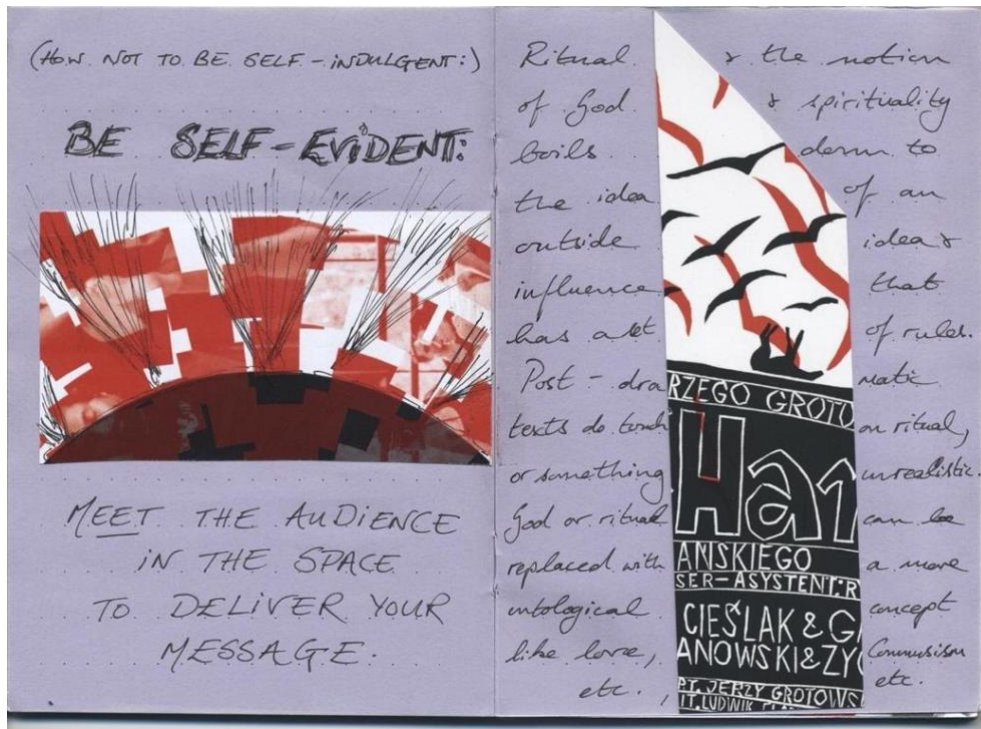 (HOW NOT TO BE SELF-INDULGENT:)
BE SELF-EVIDENT:
MEET THE AUDIENCE
IN THE SPACE
TO DELIVER YOUR
MESSAGE.
Ritual & the notion
of God & spirituality
boils down to
the idea of an
outside idea &
influence that
has a set of rules.
Post-dramatic
texts do touch on ritual,
or something unrealistic.
God or ritual can be
replaced with a more
ontological concept
like love, Communism
etc., etc.
RZEGO GROTO
Ham
ANSKIEGO
SER-ASYSTENT:R
CIEŚLAK & G
ANOWSKI & ZY
PT. JERZY GROTOWS
IT. LUDWIK